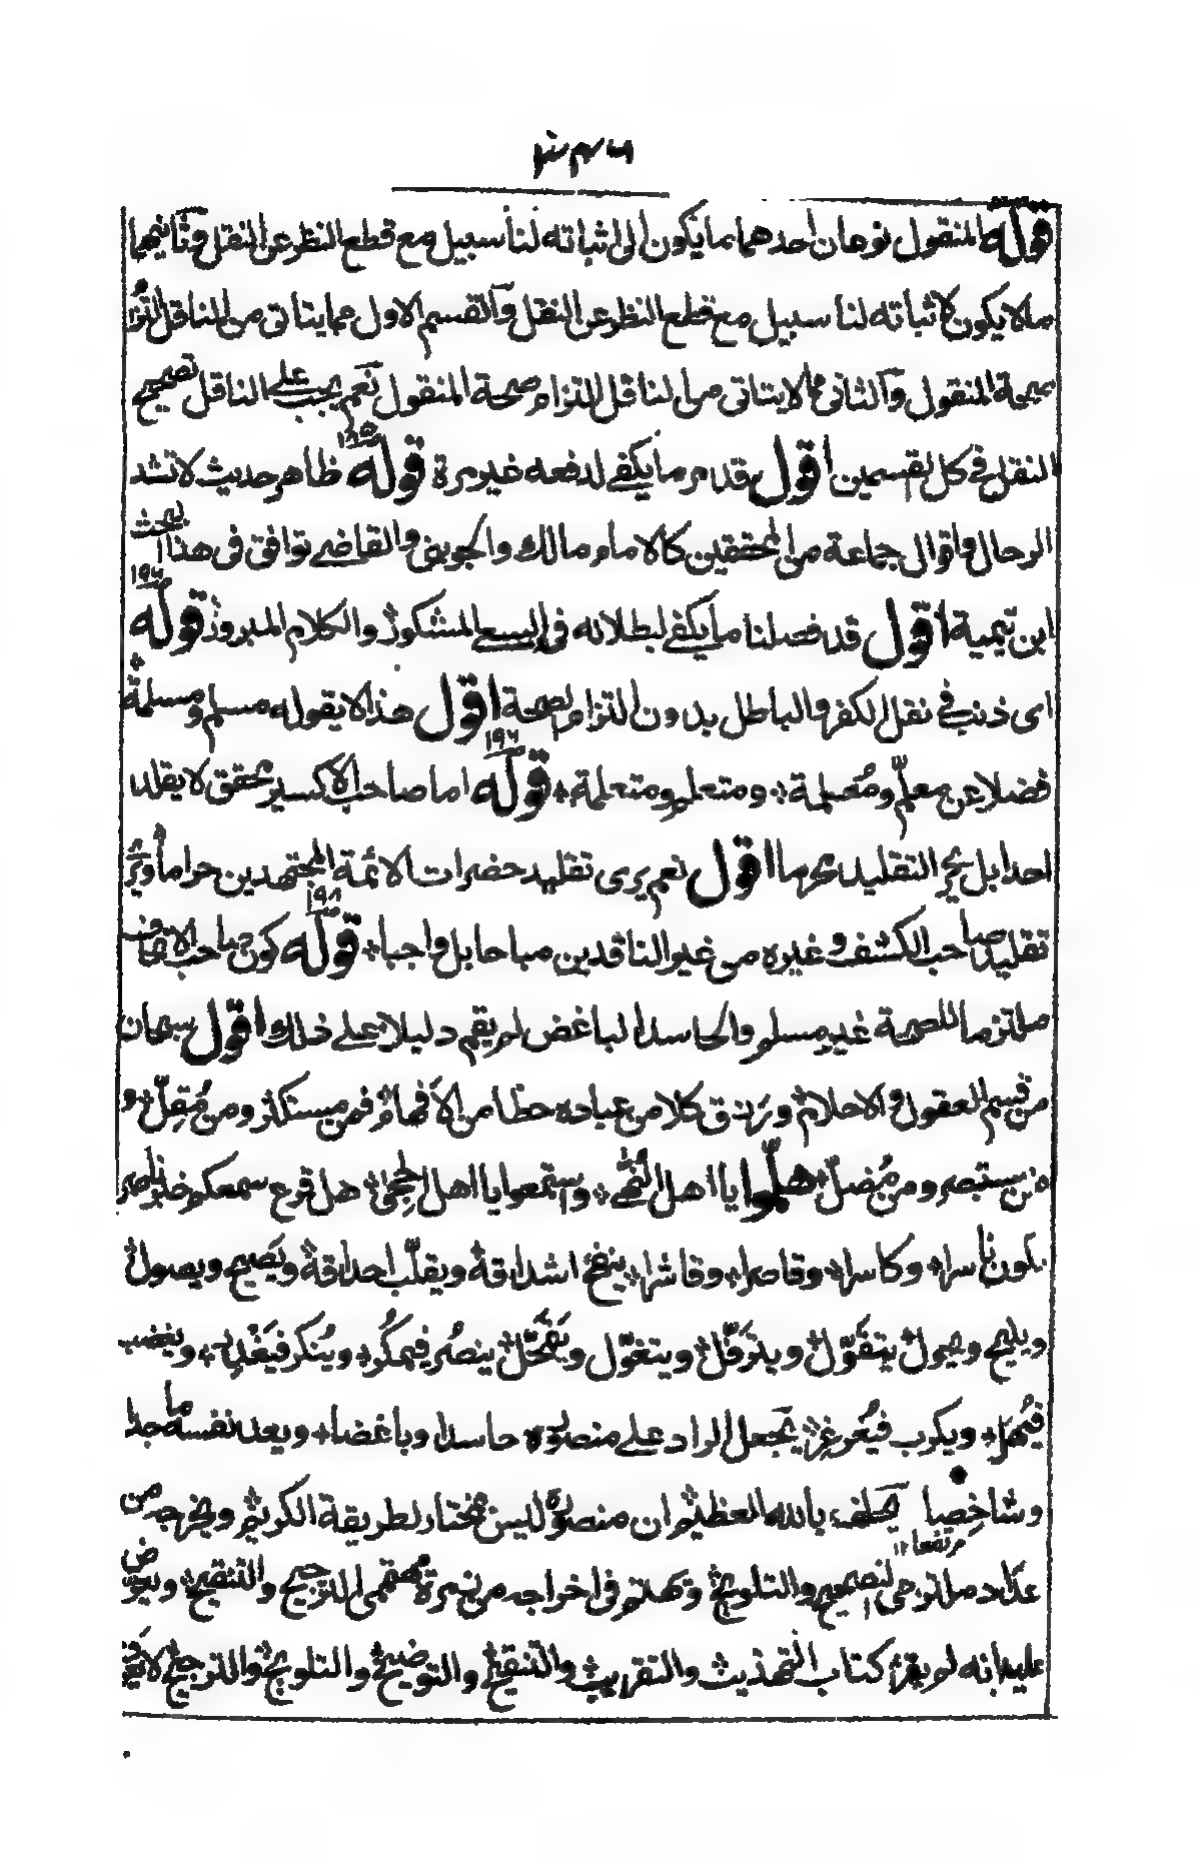 قوله المنقول نوعان احدهما ما يكون الى اثباته لنا سبيل مع قطع النظر عن النقل وثانيهما
ما لا يكون لاثباته لنا سبيل مع قطع النظر عن النقل والقسم الاول مما يتاتى من الناقل التزام
صحة المنقول والثانى مما لا يتاتى من الناقل التزام صحة المنقول نعم يجب على الناقل تصحيح
النقل فى كل القسمين اقول قد مر ما يكفى لدفعه غير مرة قوله ظاهر حديث لا تشد
الرحال واقوال جماعة من المحققين كالامام مالك والجوينى والقاضى توافق فى هذا البحث
ابن تيمية اقول قد فصلنا ما يكفى لبطلانه فى السعى المشكور والكلام المبرور قوله ١٩٦
اى ذنب فى نقل الكفر والباطل بدون التزام الصحة اقول هذا لا يقوله مسلم ومسلمة
فضلا عن معلم ومعلمة ومتعلم ومتعلمة قوله ١٩٦ اما صاحب الاكسير محقق لا يقلد
احدا بل يحر التقليد اقول نعم يرى تقليد حضرات الائمة المجتهدين حراما ويرى
تقليد صاحب الكشف وغيره من غير الناقدين مباحا بل واجبا قوله ١٩٨ كون صاحب الاتحاف
ملتزما للصحة غير مسلم والحاسد الباغض لم يقم دليلا على ذلك اقول سبحان
من قسم العقول والاحلام ورزق كلا من عباده حظا من الافهام فمن مستكثر ومن مقل و
من مستبصر ومن مضل هلموا يا اهل النهى واستمعوا يا اهل الحجى هل قرع سمعكم ناصر
يكون ناسرا وكاسرا وقاصرا وقاشرا ينفخ اشداقه ويقلب احداقه ويصيح ويصول
ويليح ويجول يتقول ويتزفل ويتغول ويتمحل ينصر فيمكر وينكر فيغدر ويغضب
ويكرب يجعل الراد على منصوره حاسدا وباغضا ويعد نفسه ماجدا
وشاخصا يحلف بالله العظيم ان منصوره ليس مختار لطريقة الكريم ويخرجه من
مرتفعا ١٢
عداد ملتزمى التصحيح والتلويح ويهتم فى اخراجه من زمرة مهتمى الترجيح والتنقيح
عليه انه لم يقرء كتاب التهذيب والتقريب والتنقيح والتوضيح والتلويح والترجيح